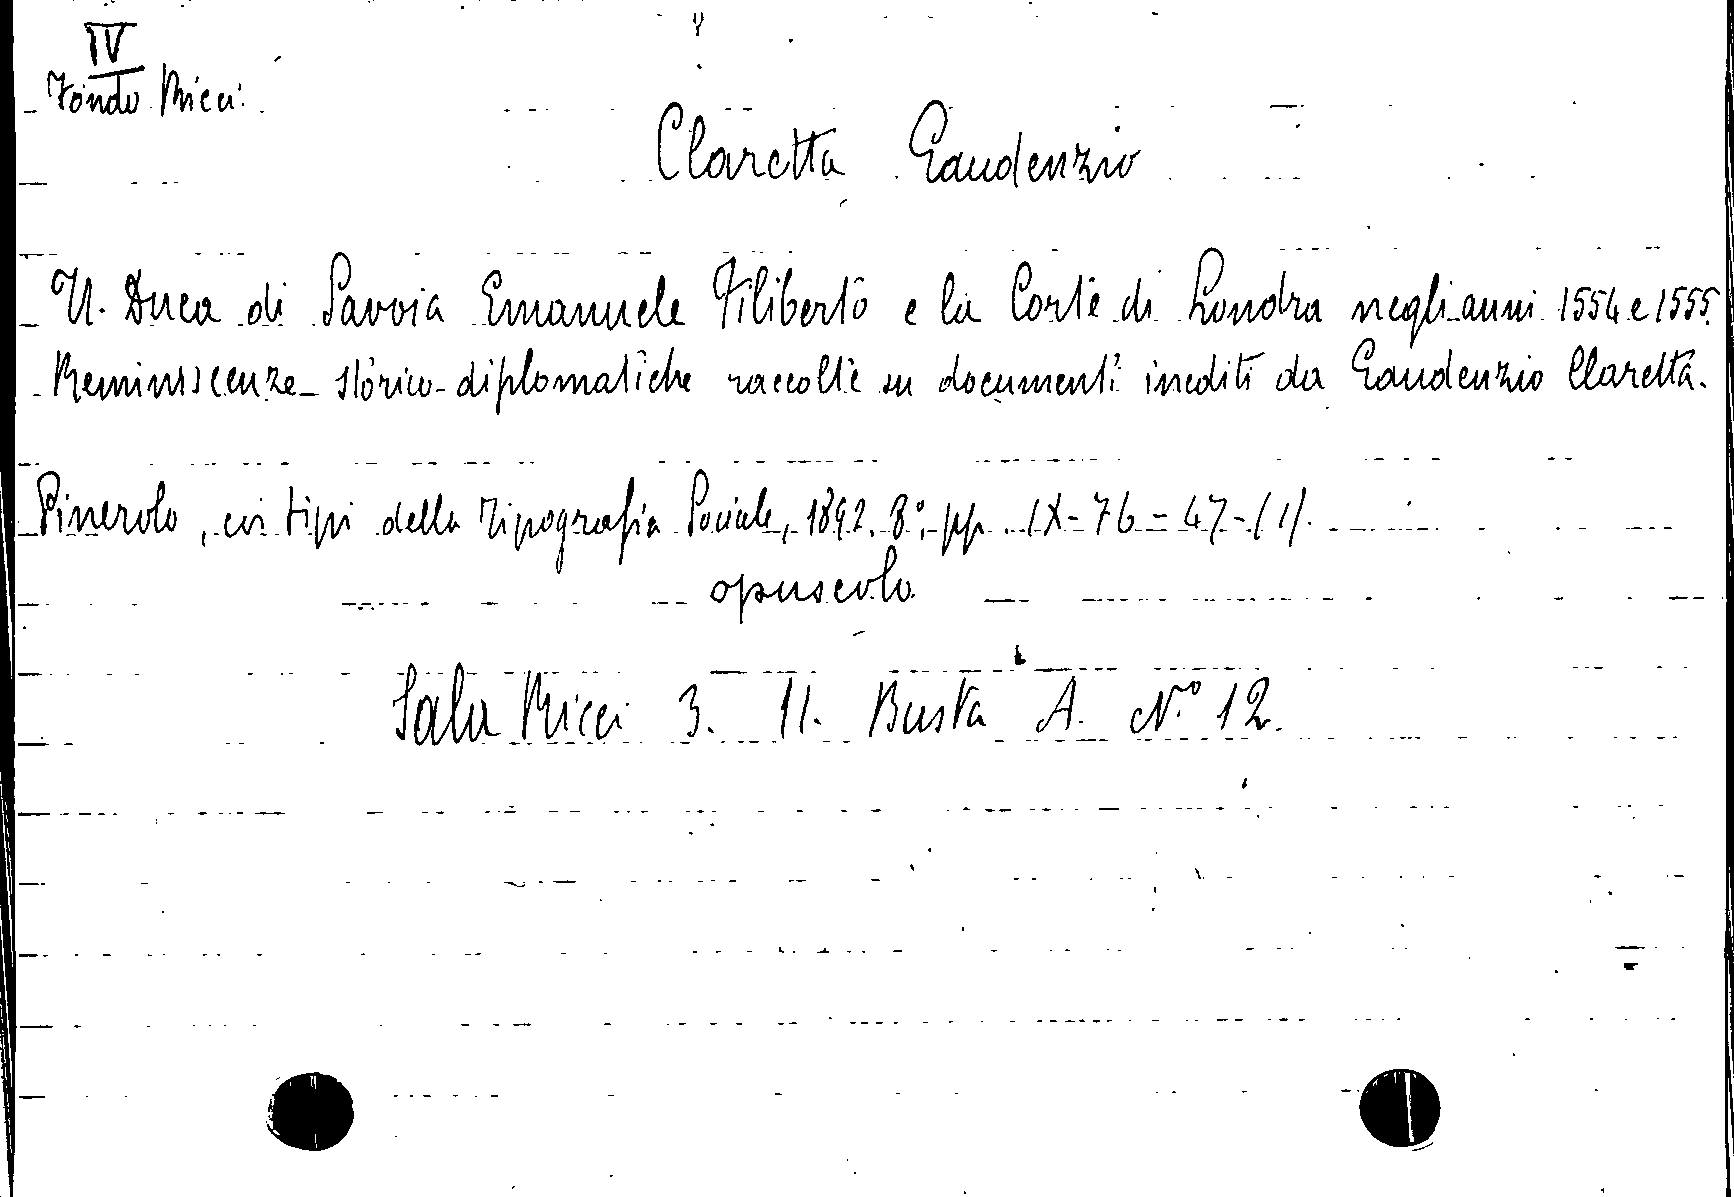 IV
Fondo Ricci.
Claretta Gaudenzio
Il Duca di Savoia Emanuele Filiberto e la Corte di Londra negli anni 1554 e 1555.
Reminiscenze storico-diplomatiche raccolte su documenti inediti da Gaudenzio Claretta.
Pinerolo, coi tipi della Tipografia Sociale, 1892. 8°, pp. IX-76-47-(1).
opuscolo
Sala Ricci 3. 11. Busta A. N.° 12.